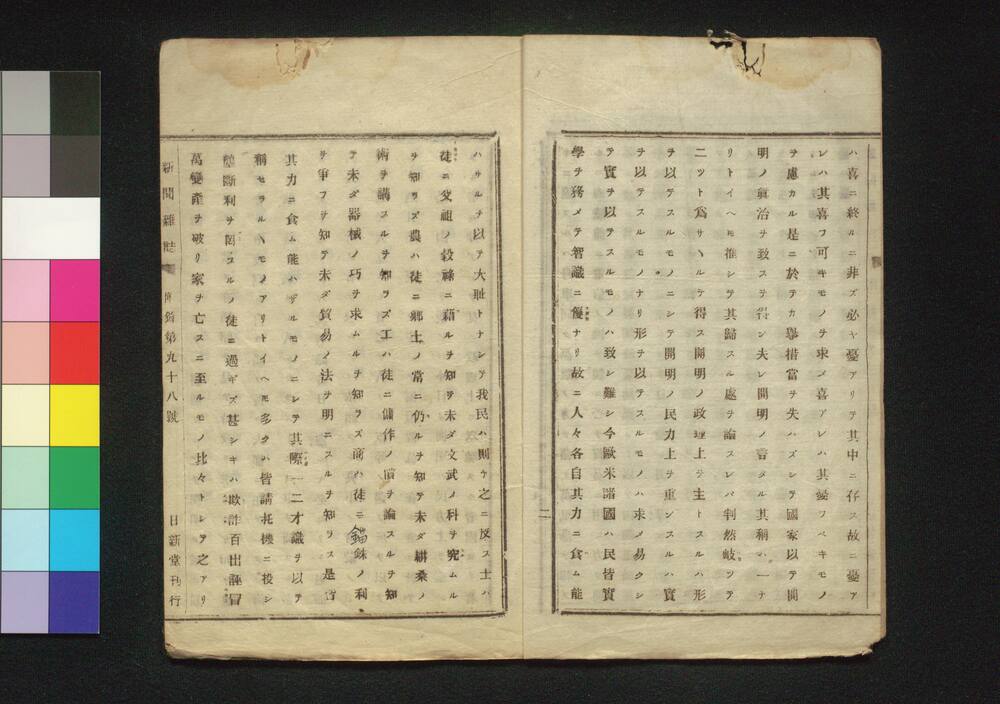 ハ喜ニ終ルニ非ズ必ヤ憂アリテ其中ニ存ス故ニ憂ア
レハ其喜フ可キモノヲ求メ喜アレハ其憂フベキモノ
ヲ慮カル是ニ於テカ擧措當ヲ失ハズシテ國家以テ開
明ノ眞治ヲ致スヲ得ン夫レ開明ノ言タル其稱ハ一ナ
リトイヘモ推シテ其歸スル處ヲ論スレバ判然岐ツテ
二ツト爲サヽルヲ得ス開明ノ政理上ヲ主トスルハ形
ヲ以テスルモノニシテ開明ノ民力上ヲ重ンスルハ實
ヲ以テスルモノナリ形ヲ以テスルモノハ求メ易クシ
テ實ヲ以テスルモノハ致シ難シ今歐米諸國ハ民皆實
學ヲ務メテ智識ニ優ナリ故ニ人々各自其力ニ食ム能
二
ハサルヲ以テ大耻トナシテ我民ハ則ケ之ニ反ス士ハ
徒ニ父祖ノ穀祿ニ藉ルヲ知ヲ未ダ文武ノ科ヲ究ムル
ヲ知リズ農ハ徒ニ郷土ノ常ニ仍ルヲ知テ未ダ耕桑ノ
術ヲ講スルヲ知ラズ工ハ徒ニ傭作ノ價ヲ論スルヲ知
テ未ダ器械ノ巧ヲ求ムルヲ知ラズ商ハ徒ニ錙銖ノ利
ヲ爭フヲ知テ未ダ貿易ノ法ヲ明ニスルヲ知ラス是皆
其力ニ食ム能ハザルモノニシテ其際一二才識ヲ以テ
稱セラルヽモノアリトイヘモ多クハ皆請托機ニ投シ
壟斷利ヲ罔スルノ徒ニ過ギズ甚シキハ欺詐百出誣冒
萬變產ヲ破リ家ヲ亡スニ至ルモノ比々トシテ之アリ
新聞雜誌 附錄第九十八號 日新堂刊行